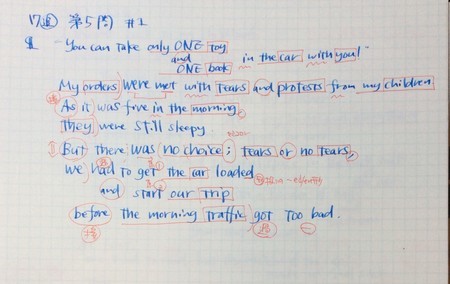 17追 第5問 #1
"You can take only ONE toy
and in the car with you!"
ONE book
My orders were met with tears and protests from my children
As it was five in the morning,
They were still sleepy
But there was no choice; tears or no tears,
we had to get the car loaded
and start our trip
before the morning traffic got too bad.